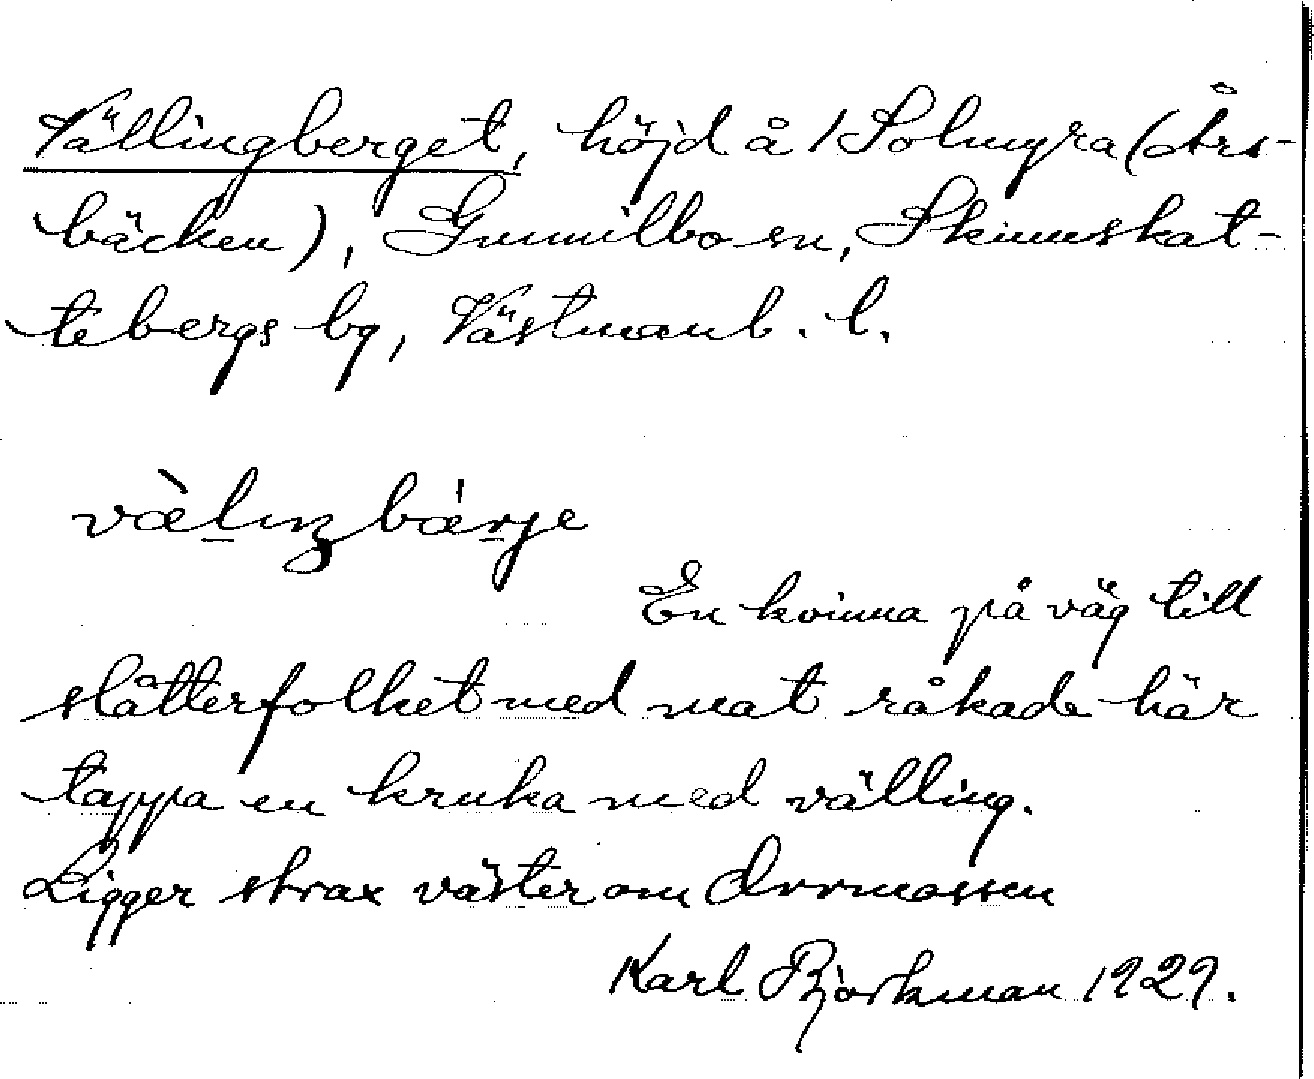 Vällingberget, höjd å 1 Solmyra (Års-
bäcken), Gunnilbo sn, Skinnskat-
tebergs bg, Västmanl. l.
vὰ̀lıŋbærje
En kvinna på väg till
slåtterfolket med mat råkade här
tappa en kruka med välling.
Ligger strax väster om Orrmossen
Karl Björkman 1929.